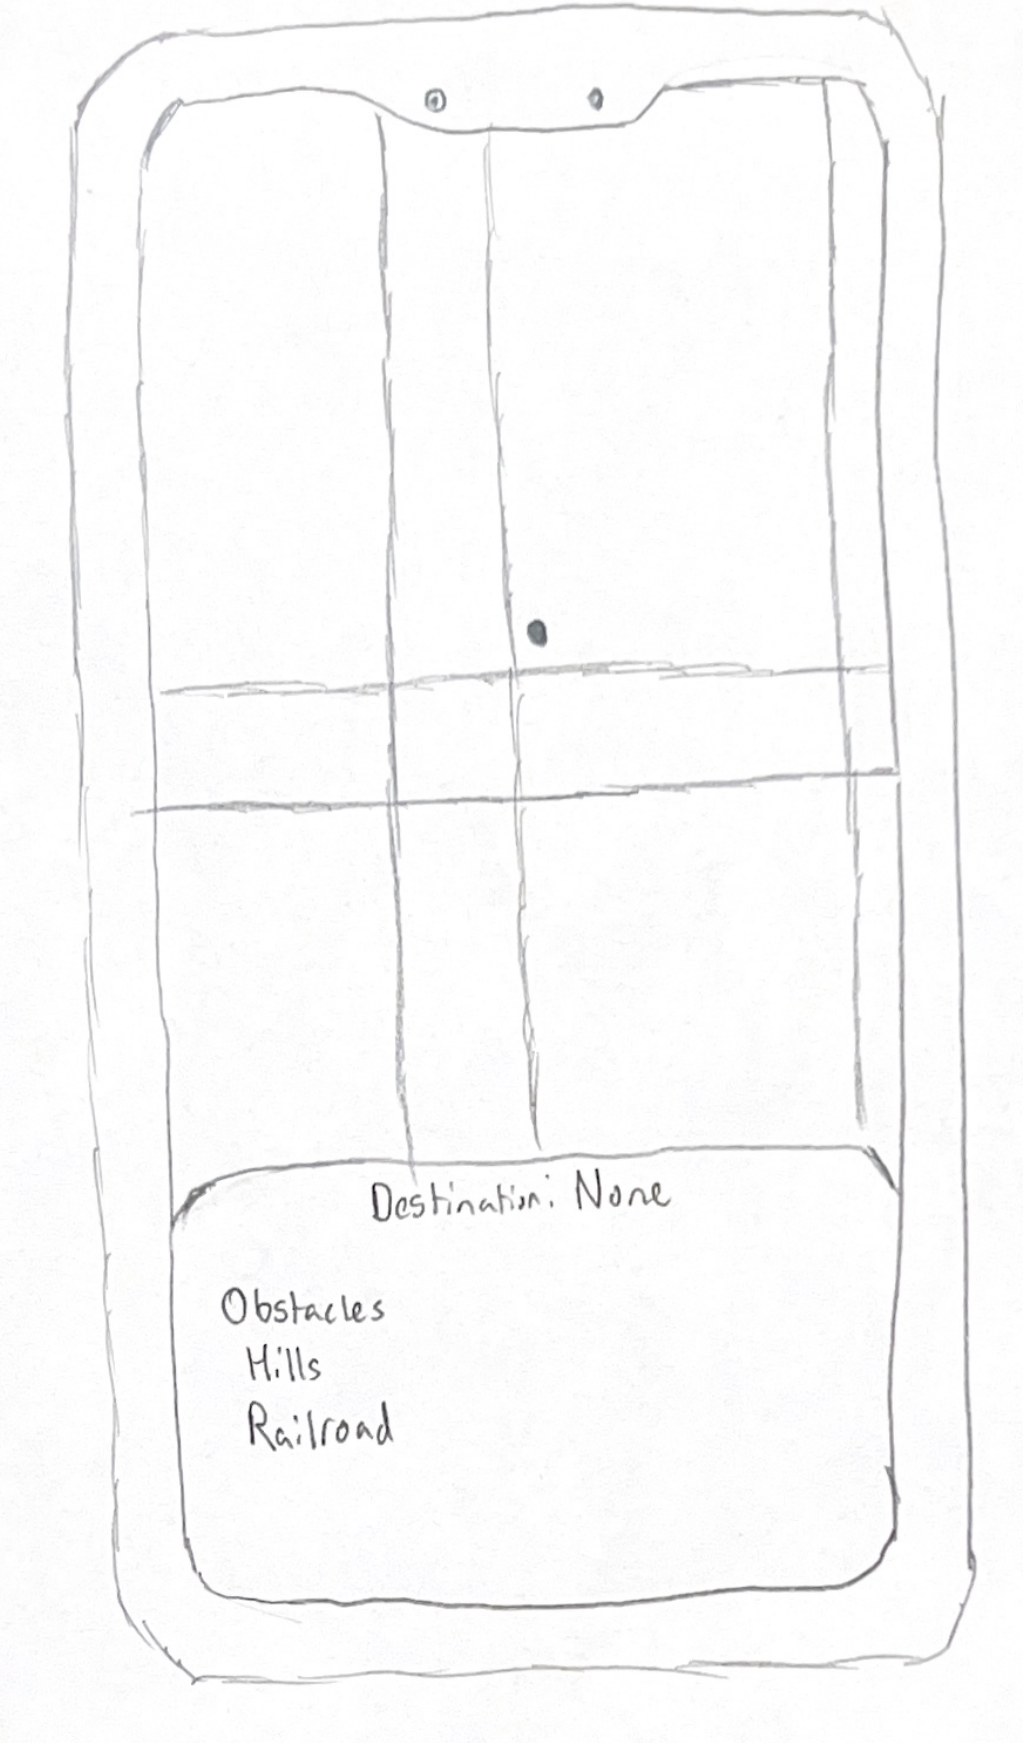 Destination: None
Obstacles
Hills
Railroad